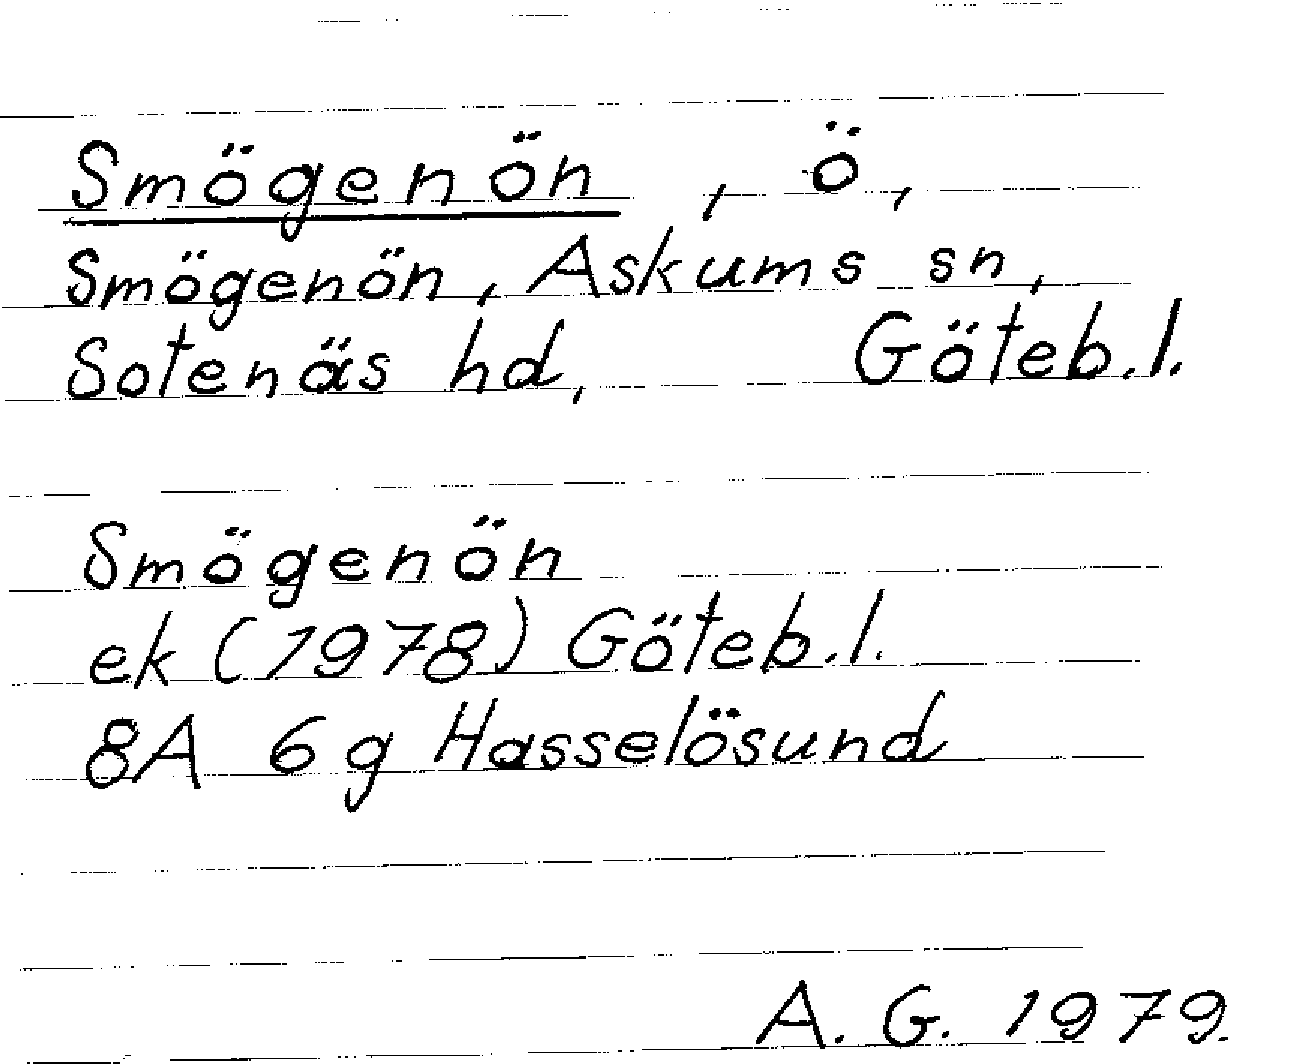 Smögenön, ö,
Smögenön, Askums sn,
Sotenäs hd, Göteb.l.
Smögenön
ek (1978) Göteb.l.
8A 6g Hasselösund
A. G. 1979.